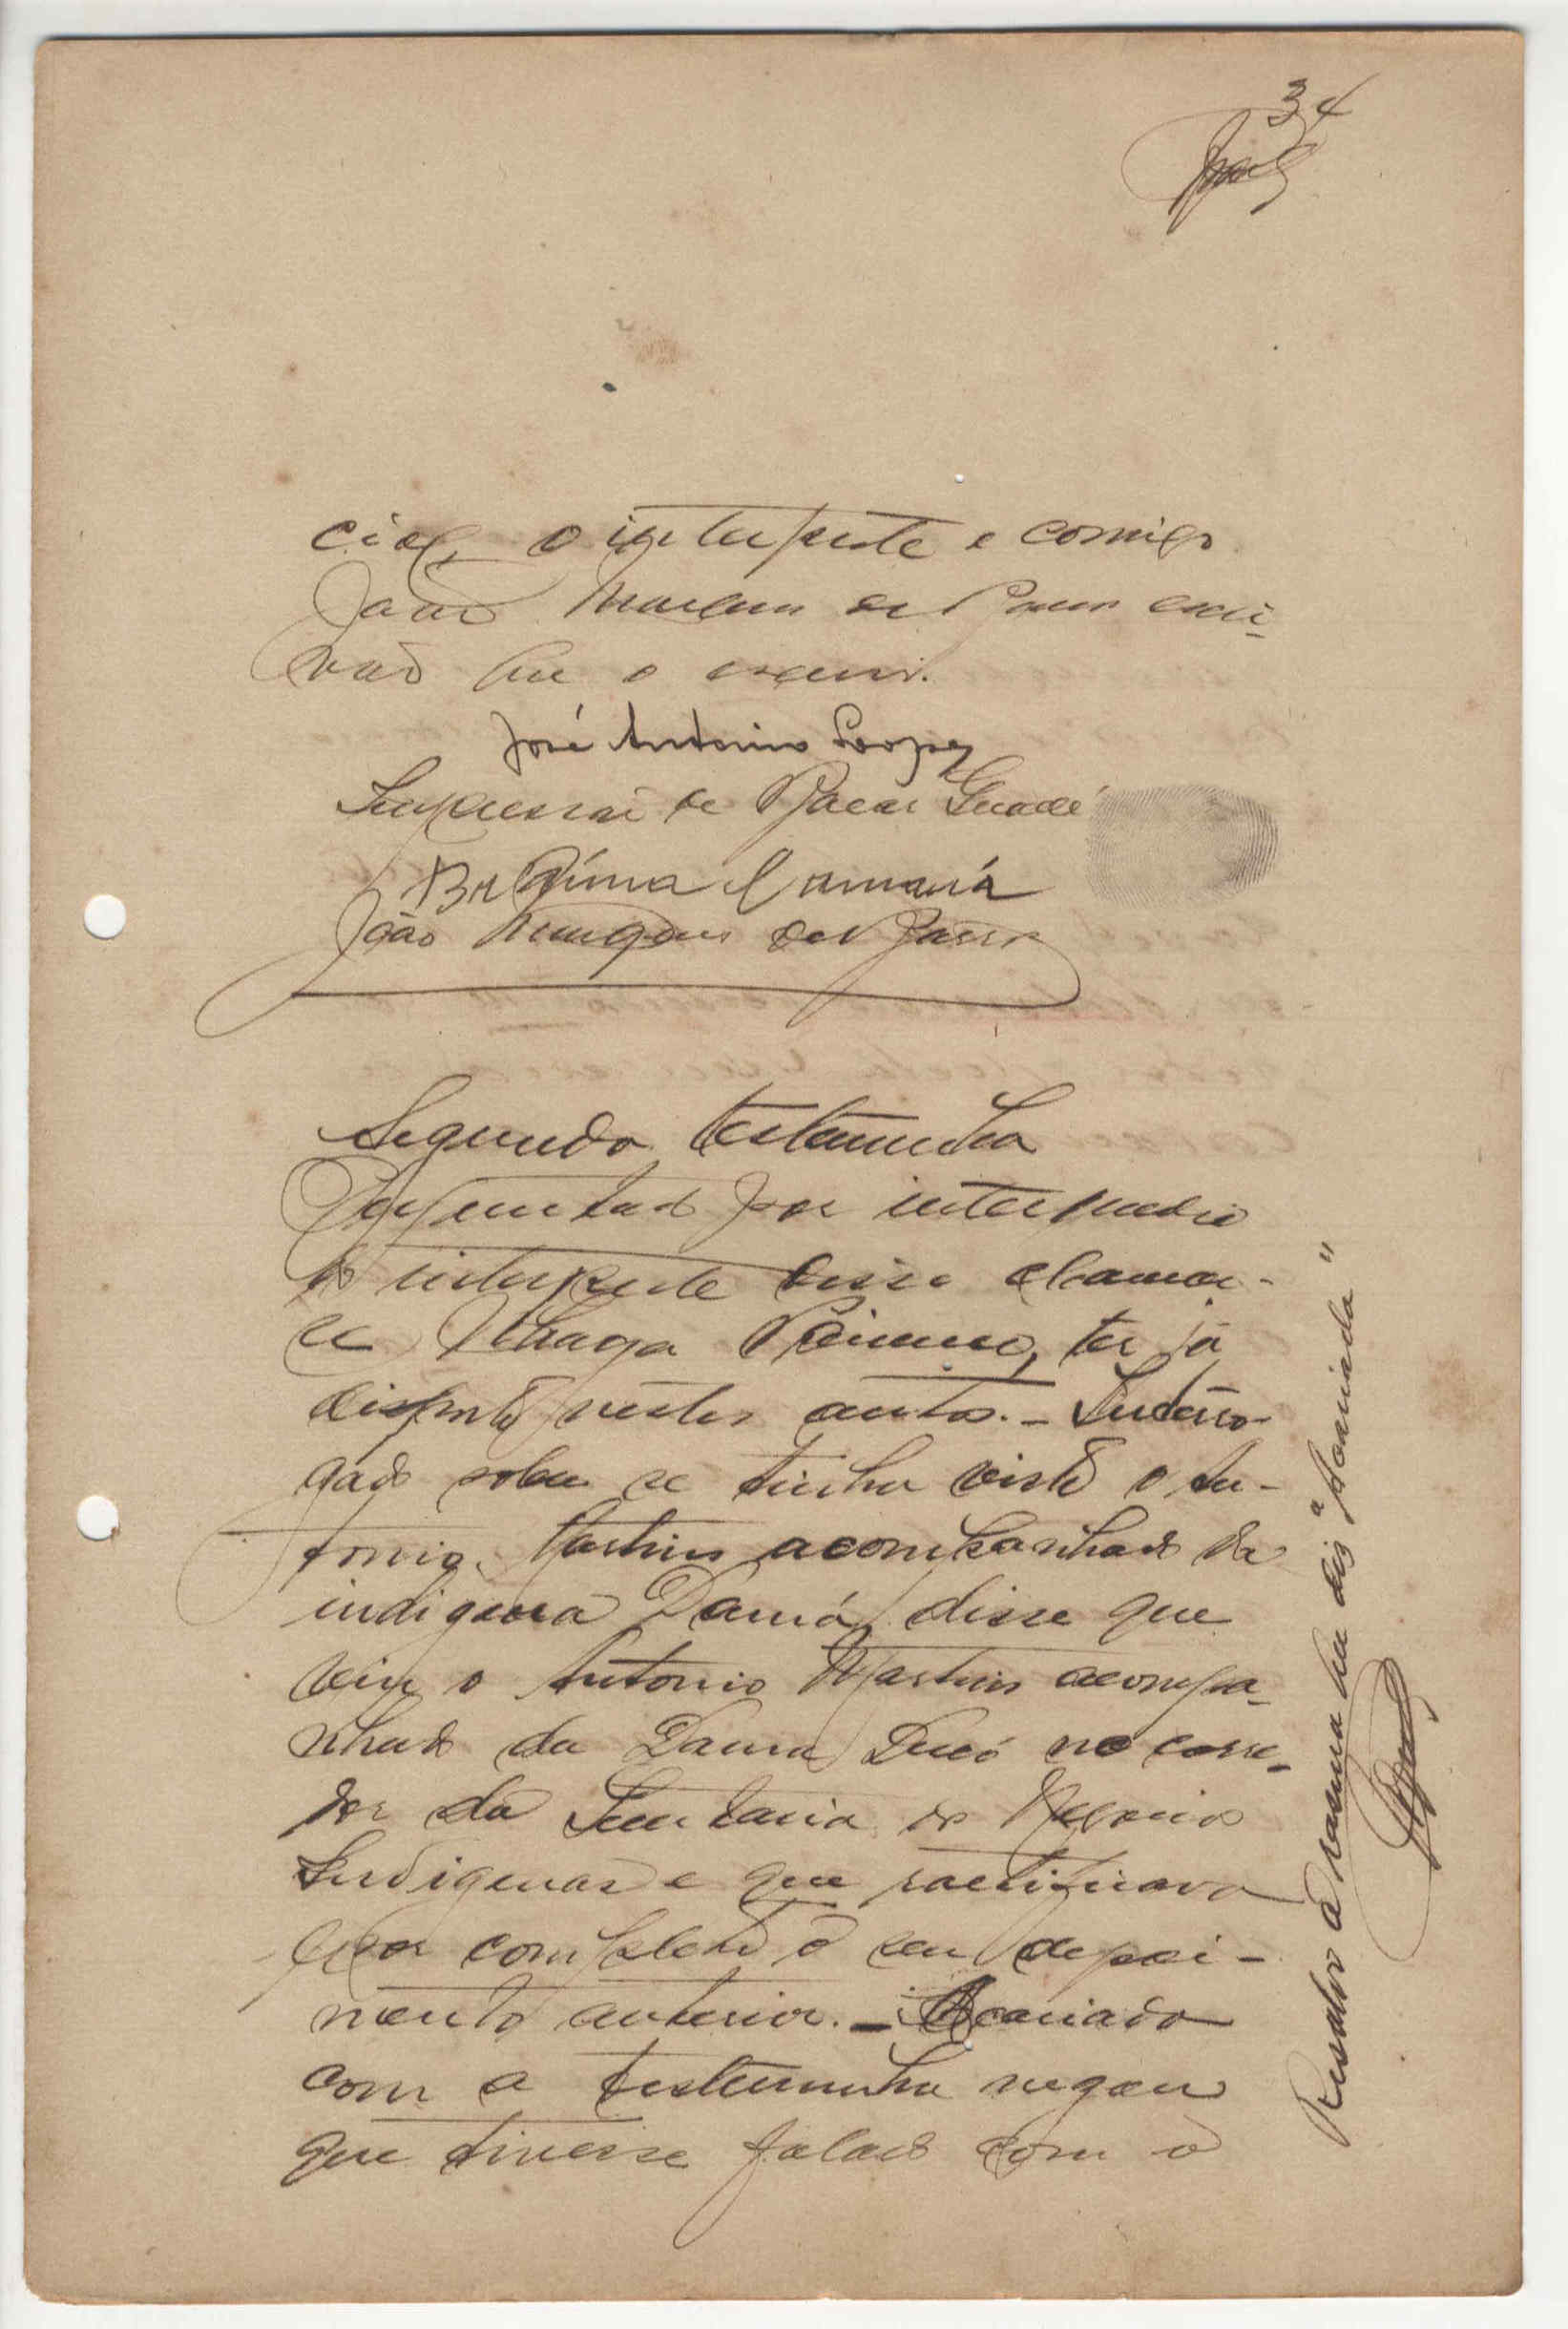 34
cial, o interprete e comigo
João Marques de Barros escri-
vão que o escrevi.
José Antonio Lopes
Impressão de Bacar Guadé
Braima Camará
João Marques de Barros
Segunda testemunha
Perguntado por intermedio
do interprete disse chamar-
se ter já
deposto nestes autos. - Interro-
gado sobre se tinha visto o An-
tonio Martins acompanhado da
indigena Damá, disse que
viu o Antonio Martins acompa-
nhado da Dama no corre-
dor da Secretaria dos Negocios
Indigenas e que ractificava
por completo o seu depoi-
mento anterior. - Acariado
com a testemunha negou
que tivesse falado com o
Resalvo a rasura que diz "Acariada"